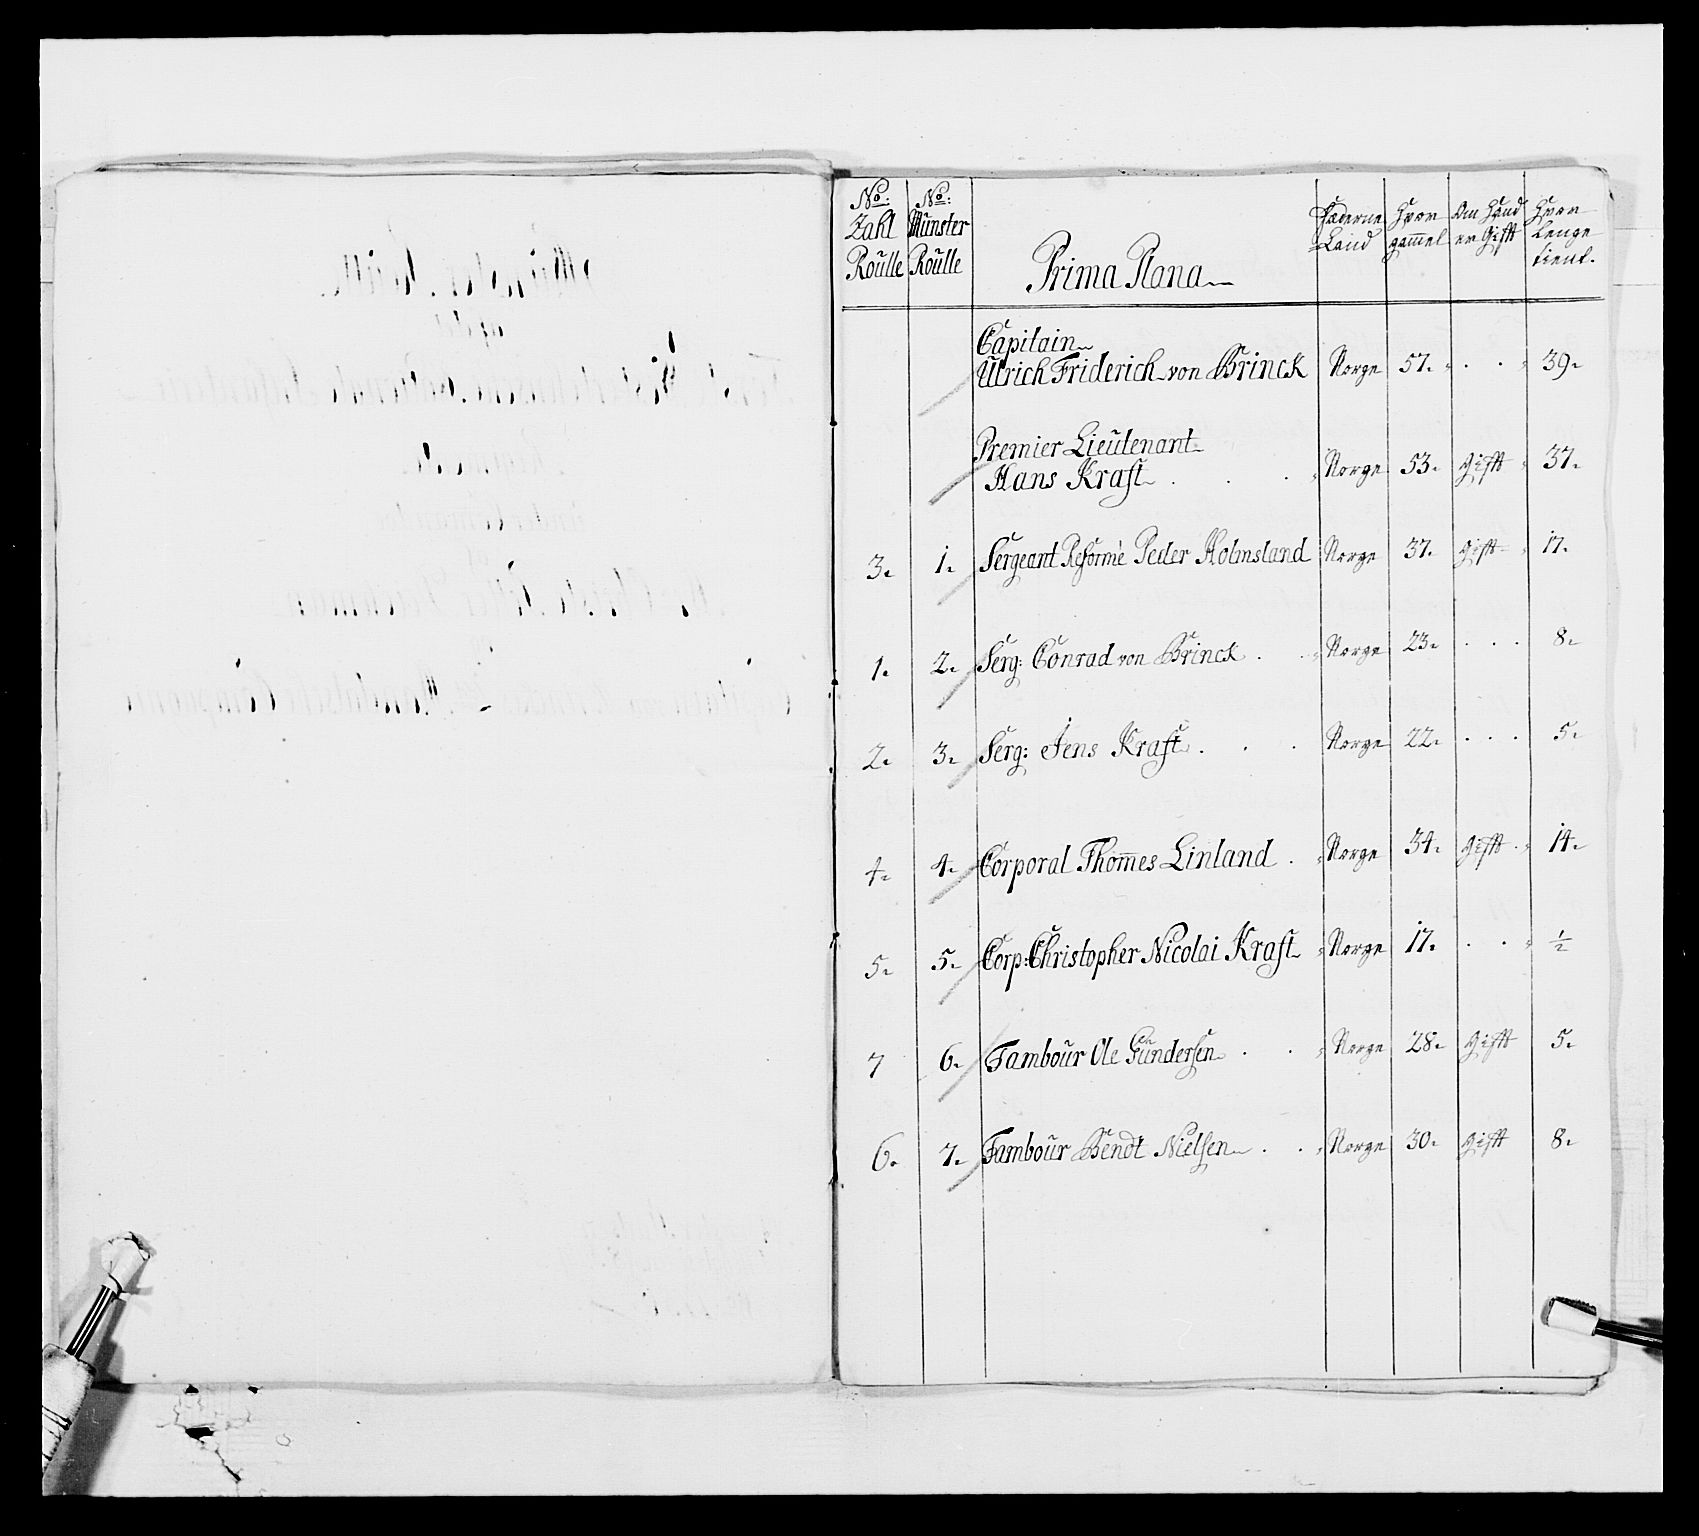 No: Zahl Roulle | No: Munster Roulle | Prima Plana | Fæderne Land | Hvor gam̅el | Om hand er Gifft | Hvor Lenge tient.
Capitain
Ulrich Friderich von Brinck | Norge | 57. | . . | 39.
Premier Lieutenant
Hans Kraft . . . | Norge | 53. | Gifft | 37.
3. | 1. | Sergeant Reformè Peder Holmsland | Norge | 37. | Gifft | 17.
1. | 2. | Serg: Conrad von Brinck . . | Norge | 23. | . . . | 8.
2. | 3. | Serg: Jens Kraft . . . | Norge | 22. | . . . | 5.
4. | 4. | Corporal Thom̅es Linland . | Norge | 34. | Gifft . | 14.
5. | 5. | Corp: Christopher Nicolai Kraft | Norge | 17. | . . | ½
7 | 6. | Tambour Ole Gundersen . . | Norge | 28. | Gifft | 5.
6. | 7. | Tambour Bendt Nielsen . . | Norge | 30. | Gifft | 8.